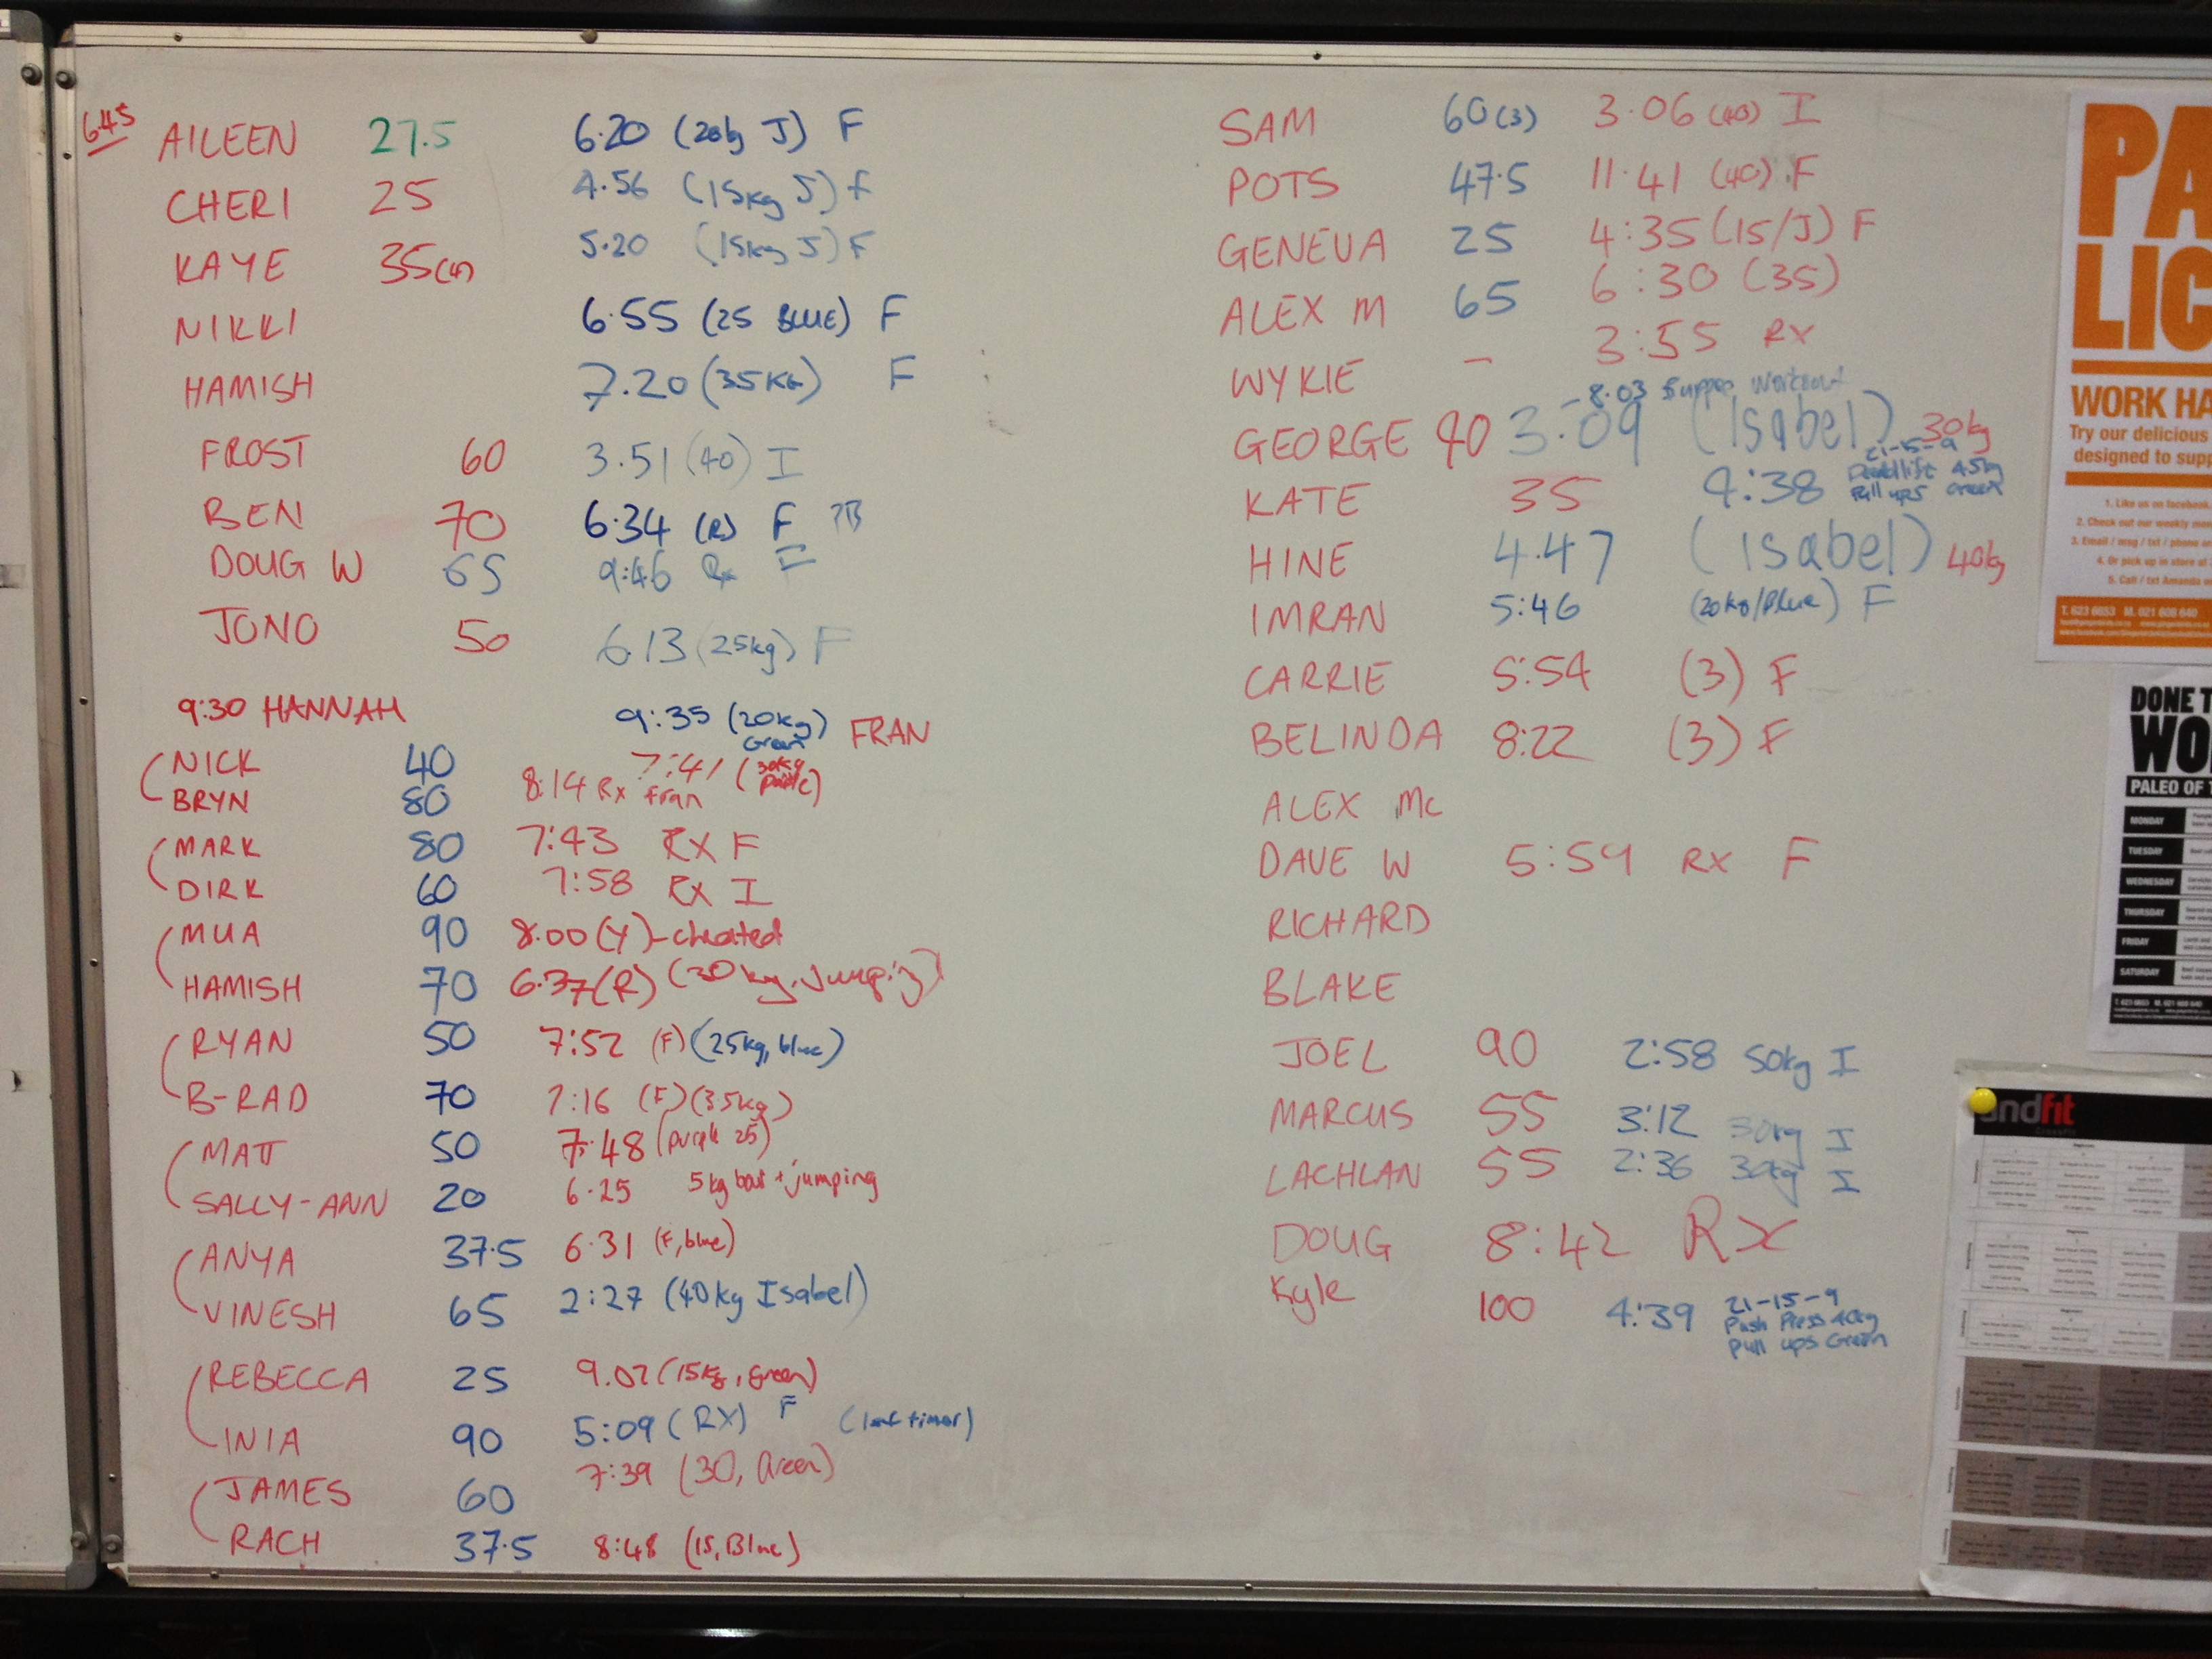 6.45
AILEEN 27.5 6.20 (20kg J) F
CHERI 25 4.56 (15kg J) F
KAYE 35(4) 5.20 (15kg J) F
NIKKI 6.55 (25 BLUE) F
HAMISH 7.20 (35KG) F
FROST 60 3.51 (40) I
BEN 70 6.34 (R) F
DOUG W 65 9:46 Rx F
JONO 50 6.13 (25kg) F
9:30 HANNAH 9:35 (20kg) FRAN
Green
NICK 40 7:41 (30kg
BRYN 80 8:14 Rx Fran
MARK 80 7:43 RX F
DIRK 60 7:58 RX I
MUA 90 8.00 (Y) - cheated
HAMISH 70 6.37 (R) (30kg, jumping)
RYAN 50 7:52 (F) (25kg, blue)
B-RAD 70 7:16 (F) (35kg)
MATT 50 7.48 (purple 25)
SALLY-ANN 20 6.25 5kg bar + jumping
ANYA 37.5 6.31 (F, blue)
VINESH 65 2:27 (40kg Isabel)
REBECCA 25 9.02 (15kg, Green)
INIA 90 5:09 (RX) F
JAMES 60 7:39 (30, Green)
RACH 37.5 8:48 (15, Blue)
SAM 60(3) 3.06 (40) I
POTS 47.5 11.41 (40) F
GENEVA 25 4:35 (15/J) F
ALEX M 65 6:30 (35)
WYKIE - 3:55 RX
-8.03 Workout
GEORGE 40 3:09 (Isabel) 30kg
KATE 35 4:38 21-15-9
Deadlift 45kg
Pull ups Green
HINE 4.47 (Isabel) 40kg
IMRAN 5:46 (20kg/Blue) F
CARRIE 5:54 (3) F
BELINDA 8:22 (3) F
ALEX Mc
DAVE W 5:59 RX F
RICHARD
BLAKE
JOEL 90 2:58 50kg I
MARCUS 55 3:12 30kg I
LACHLAN 55 2:36 30kg I
DOUG 8:42 RX
Kyle 100 4:39 21-15-9
Push Press 40kg
Pull ups Green
PA
LIC
WORK HA
Try our delicious
designed to supp
1. Like us on facebook
T. 623 6653 M. 021 608 640
DONE T
WO
PALEO OF
MONDAY
TUESDAY
WEDNESDAY
THURSDAY
FRIDAY
SATURDAY
ndfit